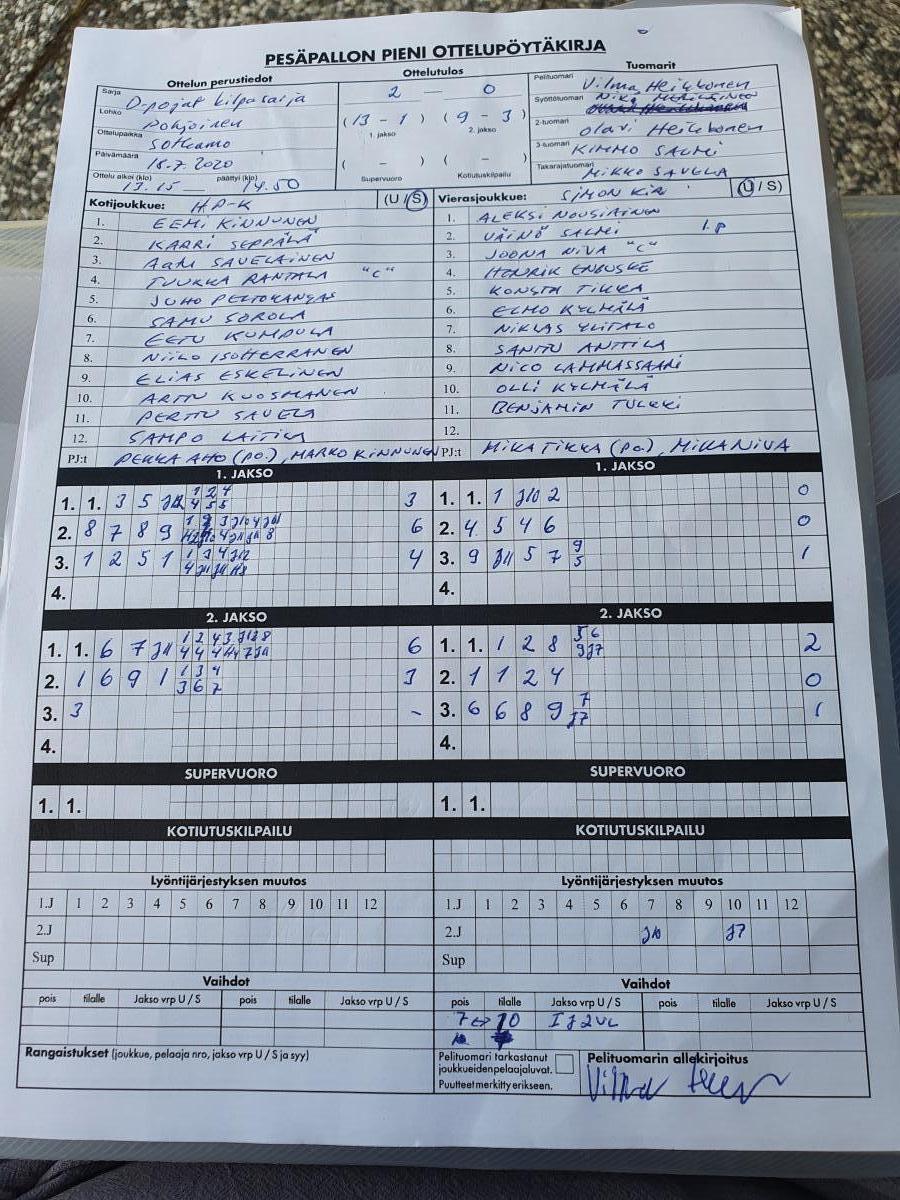 PESÄPALLON PIENI OTTELUPÖYTÄKIRJA
Ottelun perustiedot
Sarja D-pojat kilpasarja
Lohko Pohjoinen
Ottelupaikka Sotkamo
Päivämäärä 18.7.2020
Ottelu alkoi (klo) 13.15 — päättyi (klo) 14.50
Ottelutulos
2 — 0
(13 - 1) (9 - 3)
1. jakso 2. jakso
( - ) ( - )
Supervuoro Kotiutuskilpailu
Tuomarit
Pelituomari Vilma Heikkonen
Syöttötuomari
2-tuomari Olavi Heikkonen
3-tuomari KIMMO SALMI
Takarajatuomari MIKKO SAVELA
Kotijoukkue: HP-K (U / S)
1. EEMI KINNUNEN
2. KARRI SEPPÄLÄ
3. AAKU SAVELAINEN
4. TUUKKA RANTALA "C"
5. JUHO PELTOKANGAS
6. SAMU SOROLA
7. EETU KUMPULA
8. NIILO ISOHERRANEN
9. ELIAS ESKELINEN
10. ARTTU KUOSMANEN
11. PERTTU SAVELA
12. SAMPO LAITILA
PJ:t PEKKA AHO (PO.), MARKO KINNUNEN
Vierasjoukkue: SIMON KIRI (U / S)
1. ALEKSI NOUSIAINEN
2. VÄINÖ SALMI 1.P
3. JOONA NIVA "C"
4. HENRIK ENBUSKE
5. KONSTA TIKKA
6. ELMO KYLMÄLÄ
7. NIKLAS YLITALO
8. SANTTU ANTTILA
9. NICO LAMMASSAARI
10. OLLI KYLMÄLÄ
11. BENJAMIN TULKKI
12.
PJ:t MIKA TIKKA (PO.), MIKA NIVA
1. JAKSO
1. 1. 3 5 3
2. 8 7 8 9 6
3. 1 2 5 1 4
4.
1. JAKSO
1. 1. 1 J10 2 0
2. 4 5 4 6 0
3. 9 J11 5 7 9 5 1
4.
2. JAKSO
1. 1. 6 7 J11 6
2. 1 6 9 1 1 3 4 3 6 7 3
3. 3 -
4.
2. JAKSO
1. 1. 1 2 8 2
2. 1 1 2 4 0
3. 6 6 8 9 7 J7 1
4.
SUPERVUORO
1. 1.
SUPERVUORO
1. 1.
KOTIUTUSKILPAILU
KOTIUTUSKILPAILU
Lyöntijärjestyksen muutos
1.J 1 2 3 4 5 6 7 8 9 10 11 12
2.J
Sup
Lyöntijärjestyksen muutos
1.J 1 2 3 4 5 6 7 8 9 10 11 12
2.J J10 J7
Sup
Vaihdot
pois tilalle Jakso vrp U / S pois tilalle Jakso vrp U / S
Vaihdot
pois tilalle Jakso vrp U / S pois tilalle Jakso vrp U / S
7 <-> 10 I J 2 VL
Rangaistukset (joukkue, pelaaja nro, jakso vrp U / S ja syy)
Pelituomari tarkastanut
joukkueidenpelaajaluvat.
Puutteet merkitty erikseen.
Pelituomarin allekirjoitus